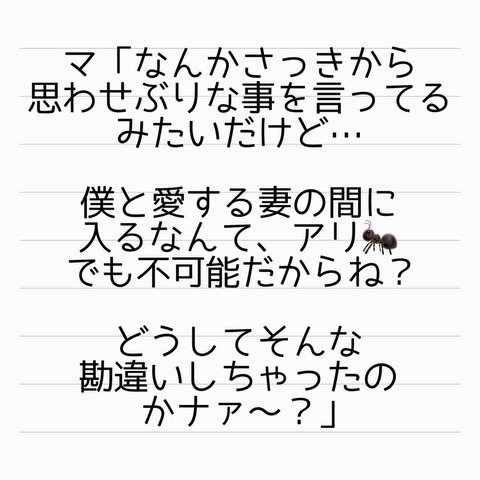 マ「なんかさっきから
思わせぶりな事を言ってる
みたいだけど…
僕と愛する妻の間に
入るなんて、アリ🐜
でも不可能だからね？
どうしてそんな
勘違いしちゃったの
かナァ〜？」